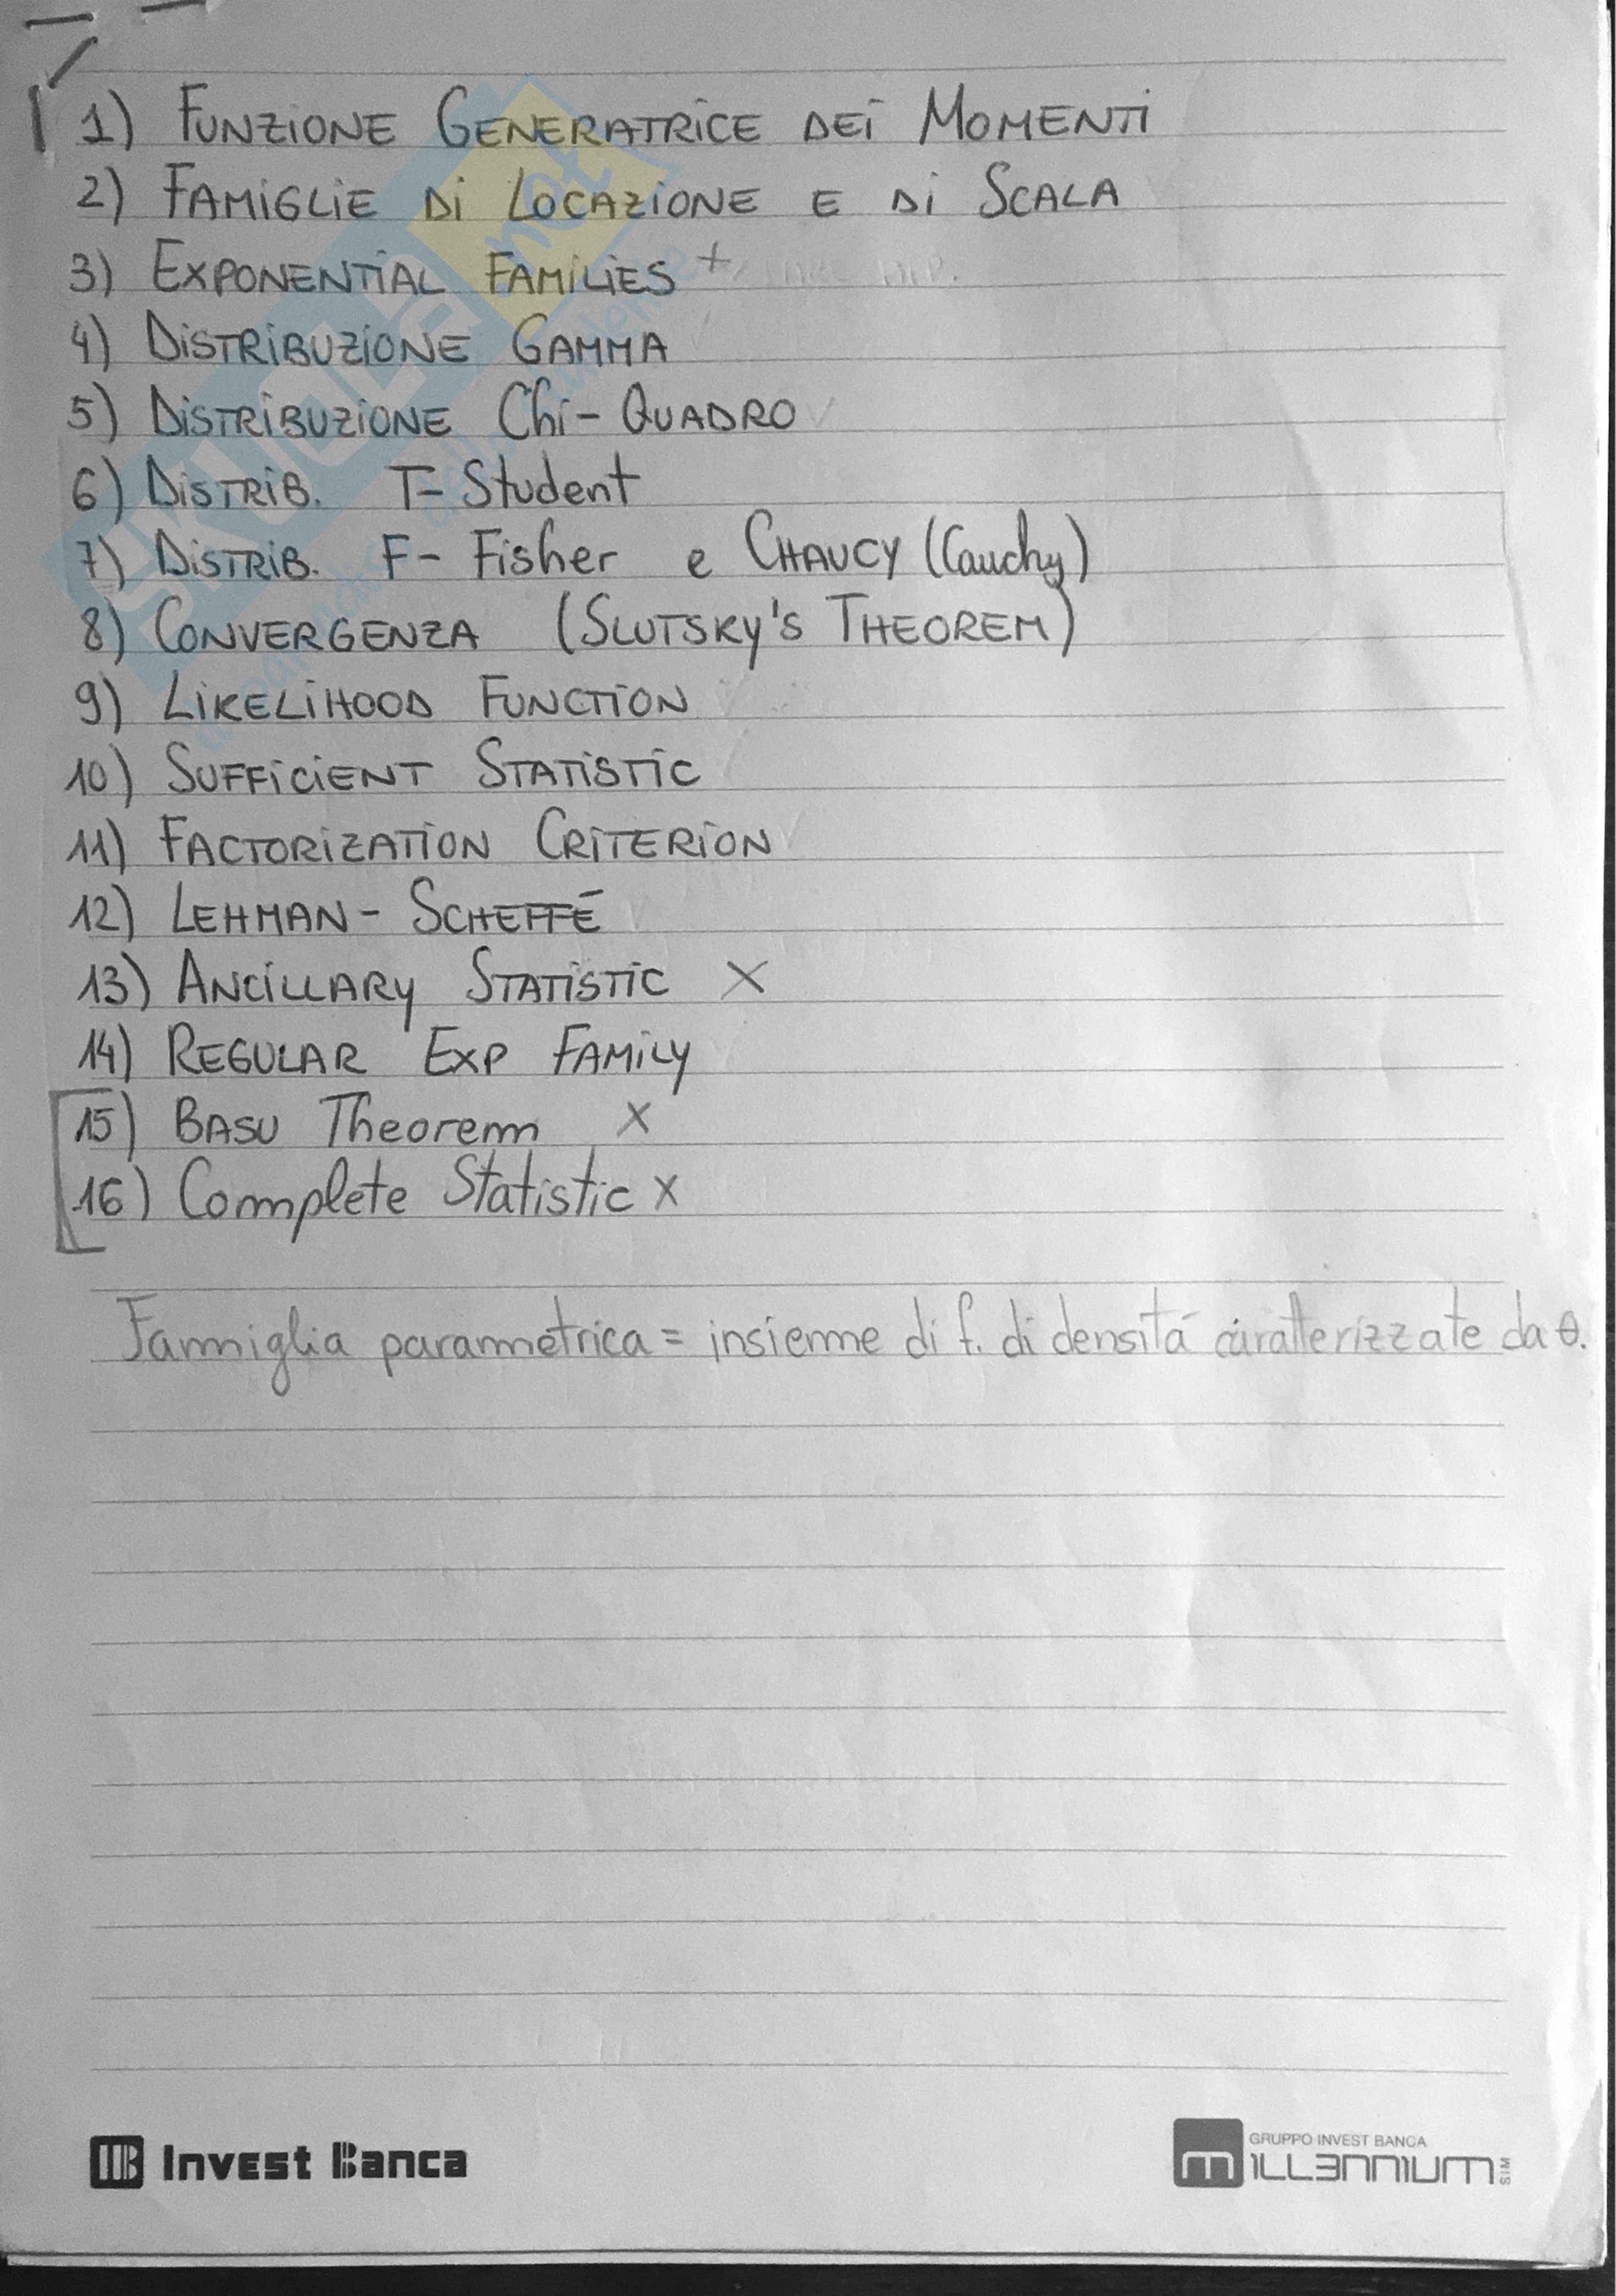 1) FUNZIONE GENERATRICE DEI MOMENTI
2) FAMIGLIE DI LOCAZIONE E DI SCALA
3) EXPONENTIAL FAMILIES +
4) DISTRIBUZIONE GAMMA
5) DISTRIBUZIONE Chi-QUADRO
6) DISTRIB. T-Student
7) DISTRIB. F- Fisher e CHAUCY (Cauchy)
8) CONVERGENZA (SLUTSKY'S THEOREM)
9) LIKELIHOOD FUNCTION
10) SUFFICIENT STATISTIC
11) FACTORIZATION CRITERION
12) LEHMAN-SCHEFFÉ
13) ANCILLARY STATISTIC X
14) REGULAR EXP FAMILY
15) BASU Theorem X
16) Complete Statistic X
Famiglia parametrica = insieme di f. di densità caratterizzate da θ.
Invest Banca
GRUPPO INVEST BANCA
MILLENNIUM SIM
SKUOLA.not